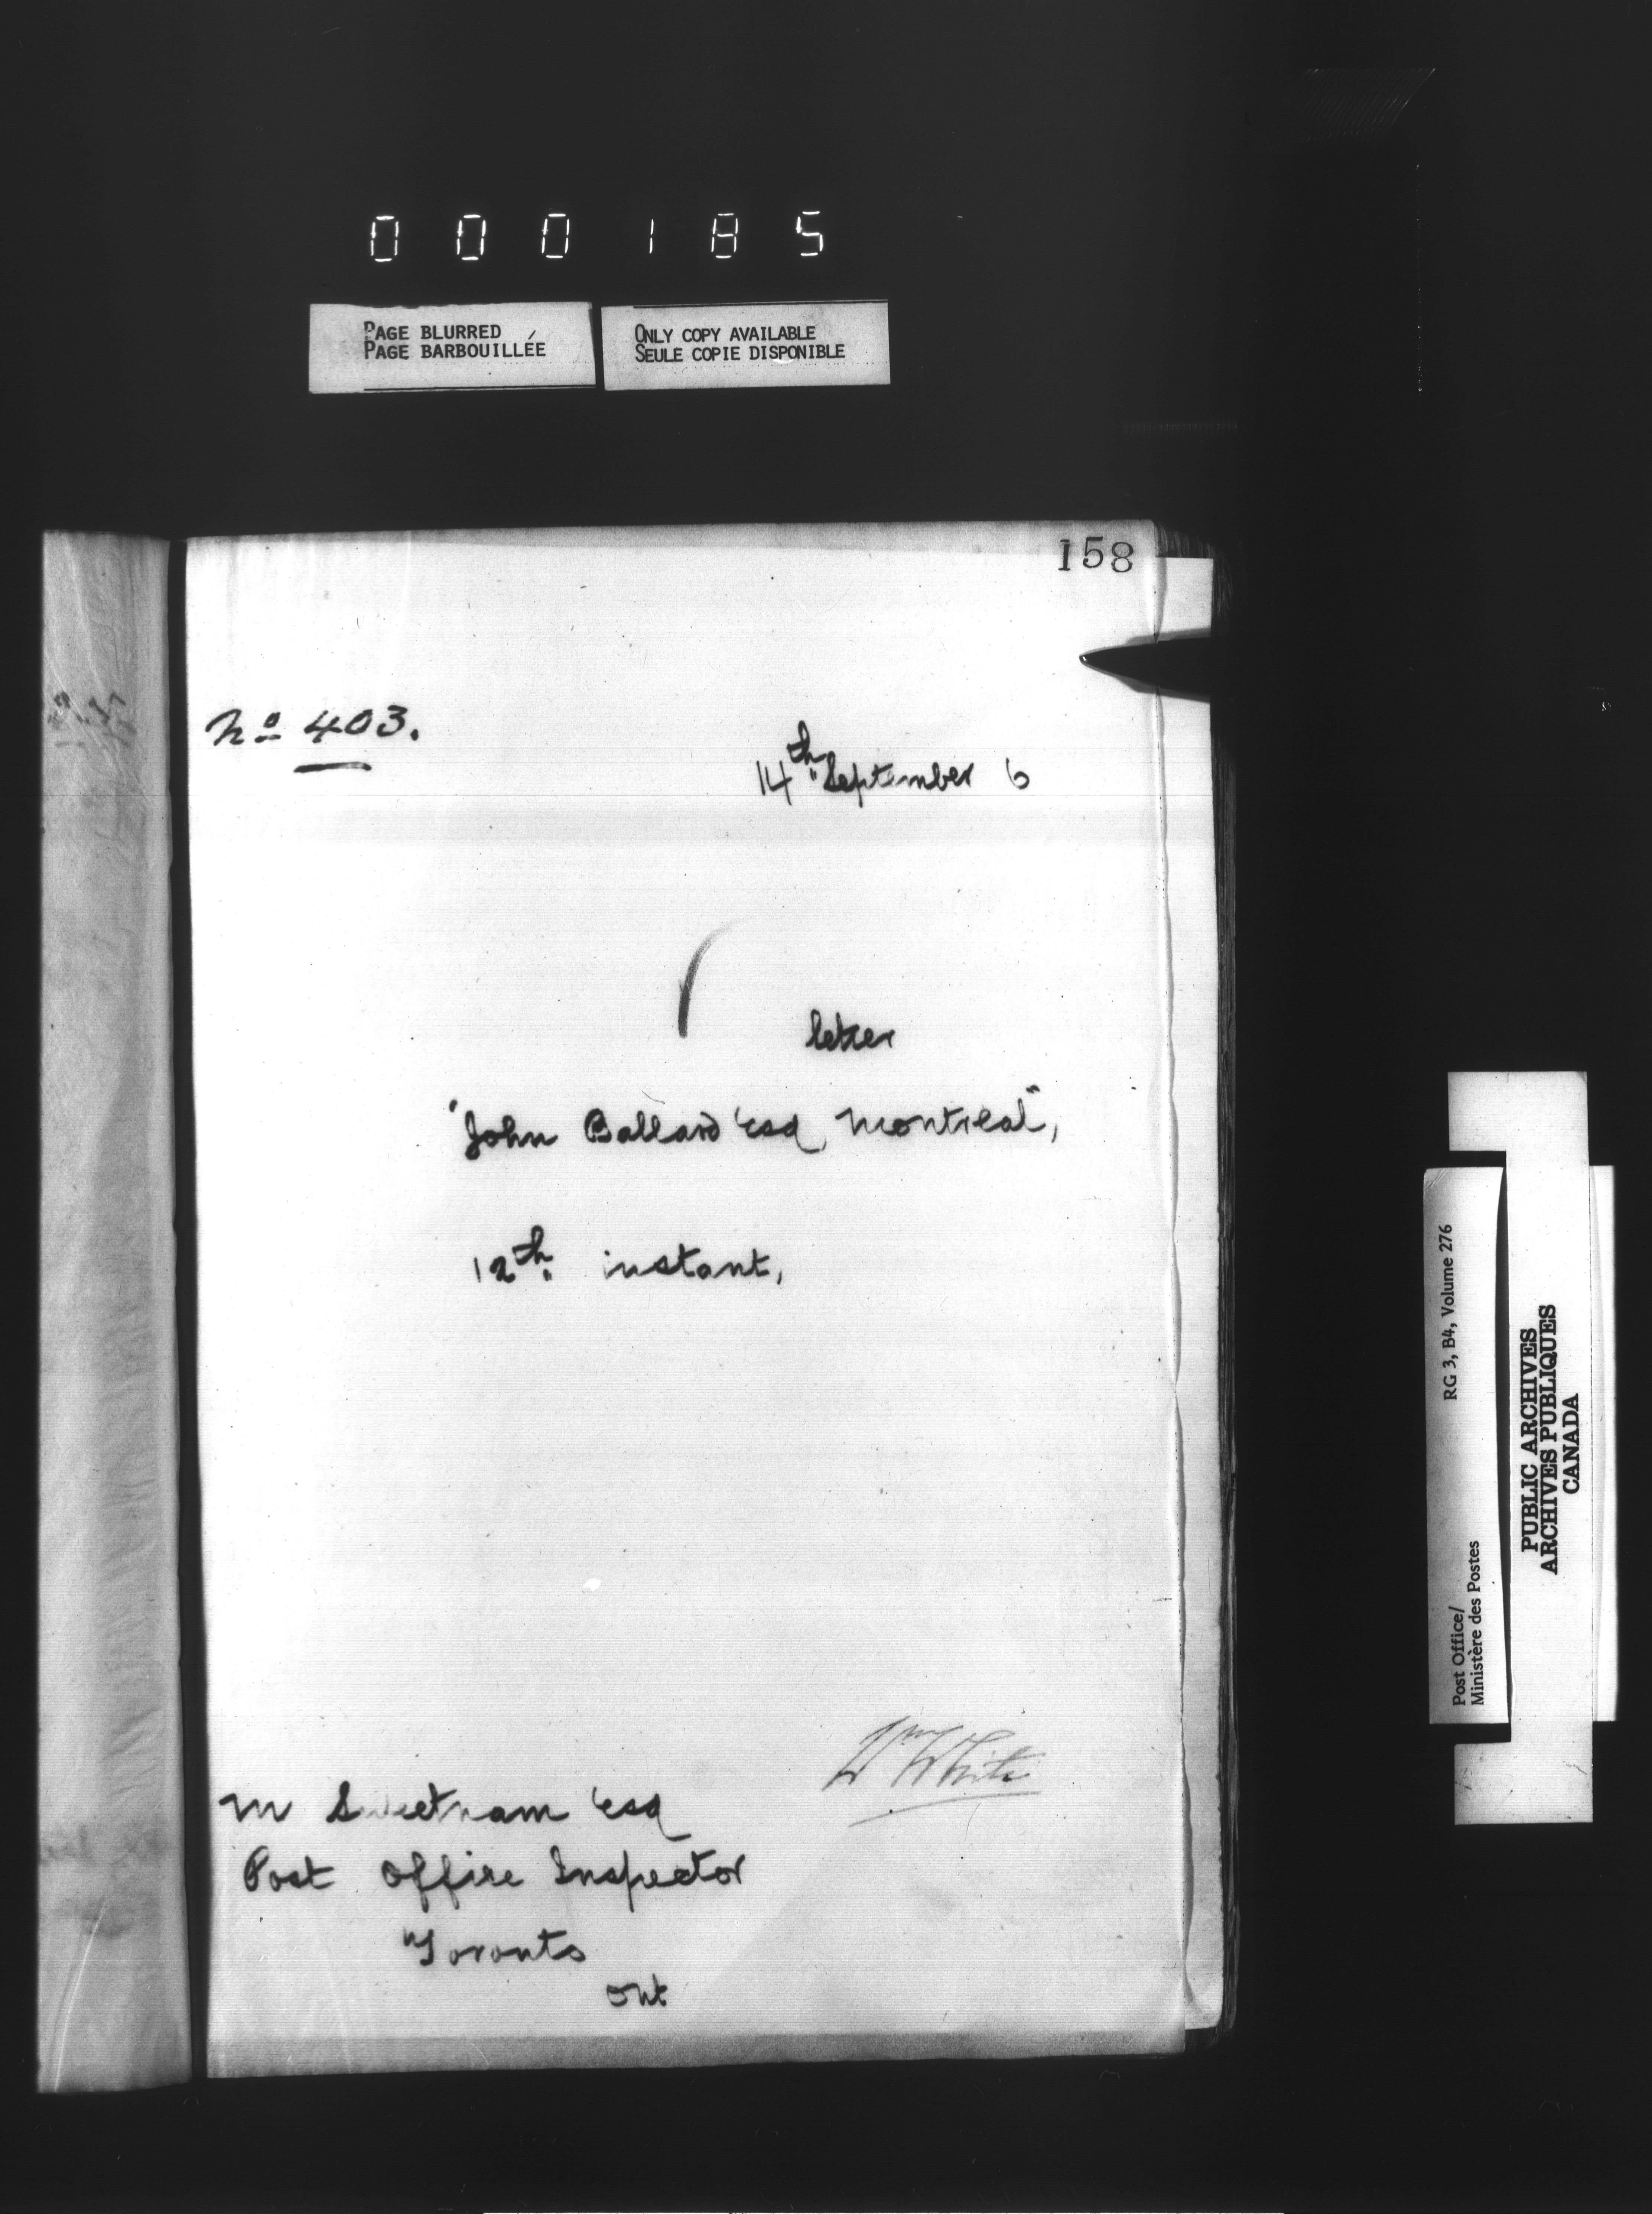 000185
PAGE BLURRED
PAGE BARBOUILLÉE
ONLY COPY AVAILABLE
SEULE COPIE DISPONIBLE
158
No 403.
14th September 6
letter
"John Ballard Esq, Montreal",
12th instant,
Wm White
M Sweetnam Esq
Post Office Inspector
Toronto
Ont
RG 3, B4, Volume 276
Post Office/
Ministère des Postes
PUBLIC ARCHIVES
ARCHIVES PUBLIQUES
CANADA